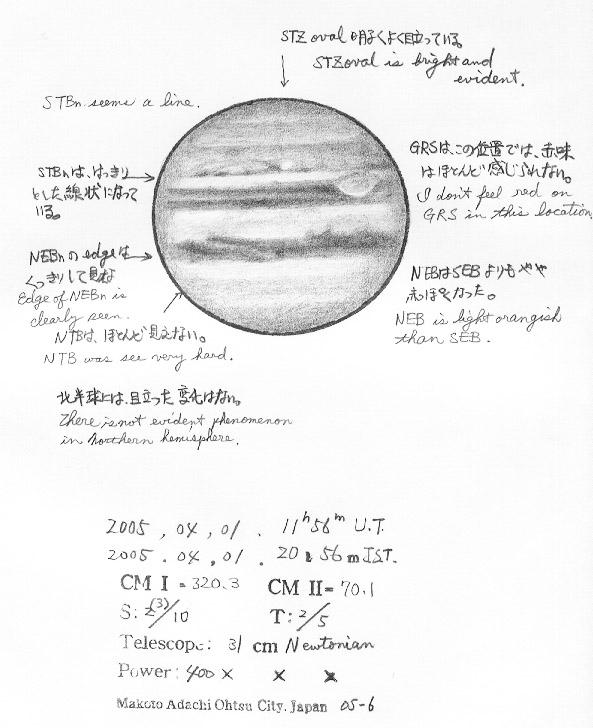 STZ oval 明るくよく目立っている。
STZ oval is bright and
evident.
STBn seems a line.
STBnは、はっきり
とした線状になって
いる。
GRSは、この位置では、赤味
はほとんど感じられない。
I don't feel red on
GRS in this location.
NEBnのedgeは
くっきりして見え
Edge of NEBn is
clearly seen.
NTBは、ほとんど見えない。
NTB was see very hard.
NEBはSEBよりもやや
赤っぽくなった。
NEB is light orangish
than SEB.
北半球には、目立った変化はない。
There is not evident phenomenon
in northern hemisphere.
2005 , 04 , 01 . 11h 56m U.T.
2005 . 04 , 01 . 20 56 m JST.
CM I = 320.3 CM II = 70.1
S: 2(3)/10 T: 2/5
Telescope: 31 cm Newtonian
Power: 400 × × ×
Makoto Adachi Ohtsu City. Japan 05-6